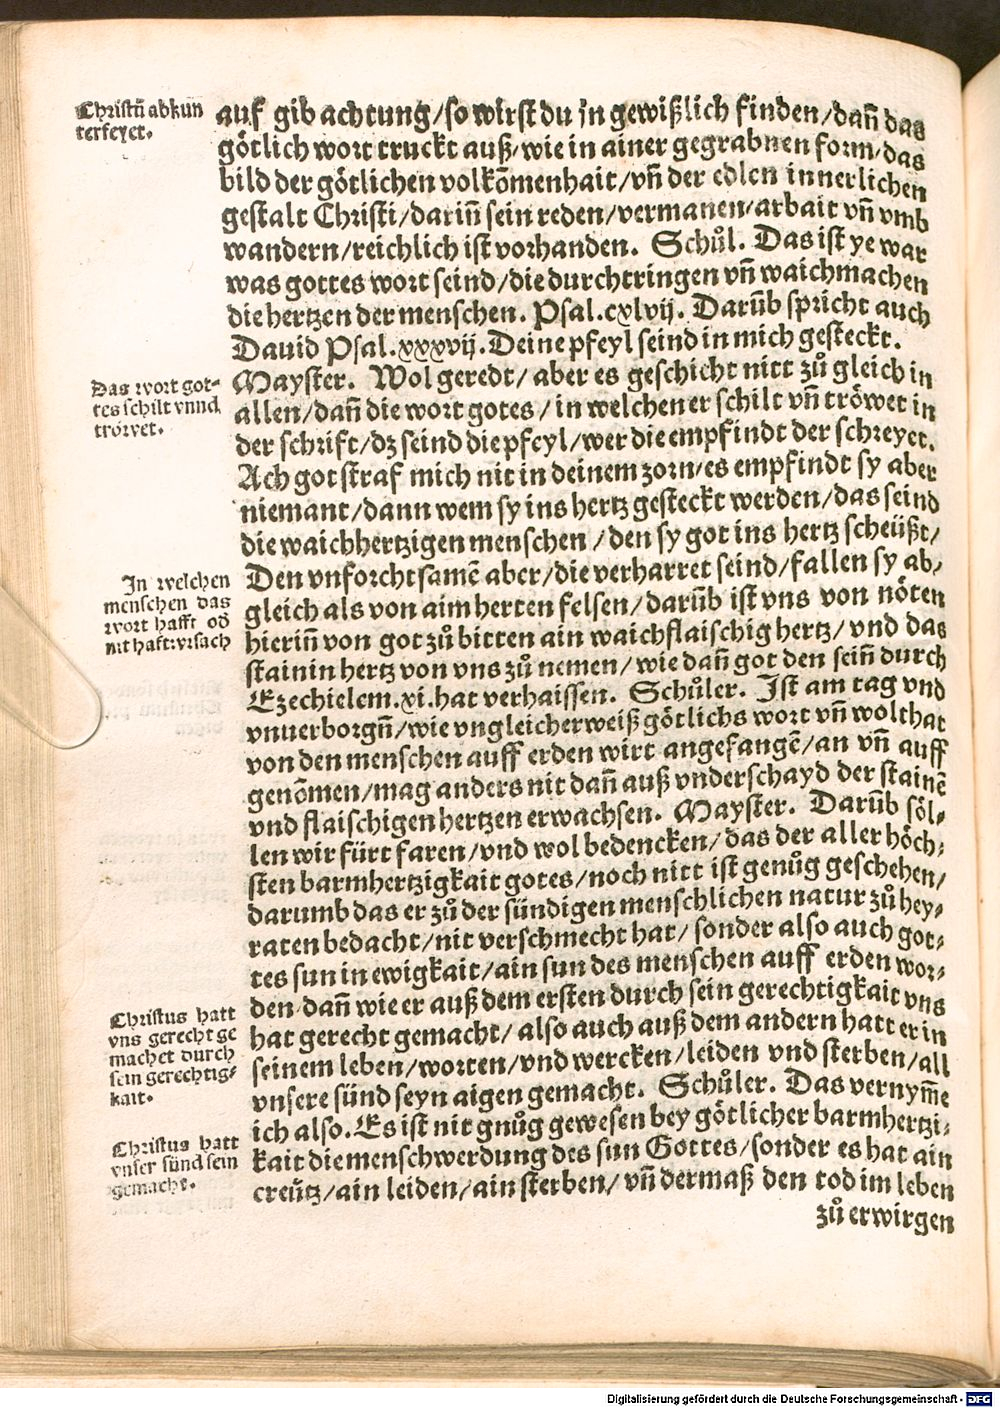 Christū abkun
terfeyet.
auf gib achtung/so wirst du jn gewißlich finden/dañ das
götlich wort truckt auß/wie in ainer gegrabnen form/das
bild der götlichen volkōmenhait/vñ der edlen innerlichen
gestalt Christi/dariñ sein reden/vermanen/arbait vñ vmb
wandern/reichlich ist vorhanden. Schůl. Das ist ye war
was gottes wort seind/die durchtringen vñ waichmachen
die hertzen der menschen. Psal.cxlvij. Darūb spricht auch
Dauid Psal.xxxvij. Deine pfeyl seind in mich gesteckt.
Das wort got-
tes schilt vnnd
tröwet.
Mayster. Wol geredt/ aber es geschicht nitt zů gleich in
allen/dañ die wort gotes/ in welchen er schilt vñ tröwet in
der schrift/dz seind die pfeyl/wer die empfindt der schreyet.
Ach got straf mich nit in deinem zorn/es empfindt sy aber
niemant/dann wem sy ins hertz gesteckt werden/das seind
die waichhertzigen menschen/den sy got ins hertz scheüßt/
In welchen
menschen das
wort hafft od
nit haft vrsach
Den vnforchtsamē aber/die verharret seind/fallen sy ab/
gleich als von aim herten felsen/darūb ist vns von nöten
hieriñ von got zů bitten ain waichflaischig hertz/vnd das
stainin hertz von vns zů nemen/wie dañ got den seiñ durch
Ezechielem.xi.hat verhaissen. Schůler. Ist am tag vnd
vnuerborgñ/wie vngleicherweiß götlichs wort vñ wolthat
von den menschen auff erden wirt angefangē/an vñ auff
genōmen/mag anders nit dañ auß vnderschayd der stainē
vnd flaischigen hertzen erwachsen. Mayster. Darūb söl-
len wir fürt faren/vnd wol bedencken/das der aller höch-
sten barmhertzigkait gotes/noch nitt ist genůg geschehen/
darumb das er zů der sündigen menschlichen natur zů hey-
raten bedacht/nit verschmecht hat/sonder also auch got-
tes sun in ewigkait/ain sun des menschen auff erden wor-
Christus hatt
vns gerecht ge
machet durch
sein gerechtig-
kait.
den dañ wie er auß dem ersten durch sein gerechtigkait vns
hat gerecht gemacht/ also auch auß dem andern hatt er in
seinem leben/worten/vnd wercken/leiden vnd sterben/all
vnsere sünd seyn aigen gemacht. Schůler. Das vernym̄e
Christus hatt
vnser sünd sein
gemacht.
ich also. Es ist nit gnůg gewesen bey götlicher barmhertzi-
kait die menschwerdung des sun Gottes/sonder es hat ain
creütz/ain leiden/ain sterben/vñ dermaß den tod im leben
zů erwirgen
Digitalisierung gefördert durch die Deutsche Forschungsgemeinschaft - DFG